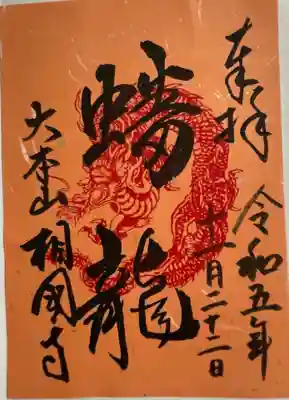 奉拝
令和五年
十一月二十二日
蟠龍
大本山相国寺